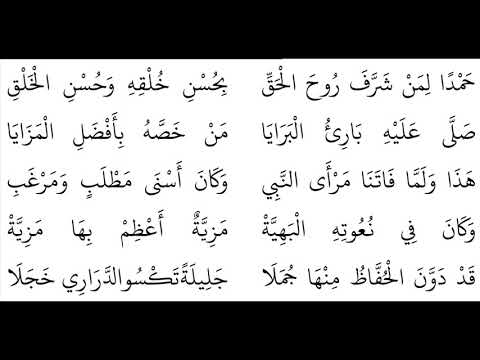 حَمْدًا لِمَنْ شَرَّفَ رُوحَ الْحَقِّ بِحُسْنِ خُلْقِهِ وَحُسْنِ الْخَلْقِ
صَلَّى عَلَيْهِ بَارِئُ الْبَرَايَا مَنْ خَصَّهُ بِأَفْضَلِ الْمَزَايَا
هَذَا وَلَمَّا فَاتَنَا مَرْأَى النَّبِي وَكَانَ أَسْنَى مَطْلَبٍ وَمَرْغَبِ
وَكَانَ فِي نُعُوتِهِ الْبَهِيَّةْ مَزِيَّةٌ أَعْظِمْ بِهَا مَزِيَّةْ
قَدْ دَوَّنَ الْحُفَّاظُ مِنْهَا جُمَلَا جَلِيلَةً تَكْسُو الدَّرَارِي خَجَلَا